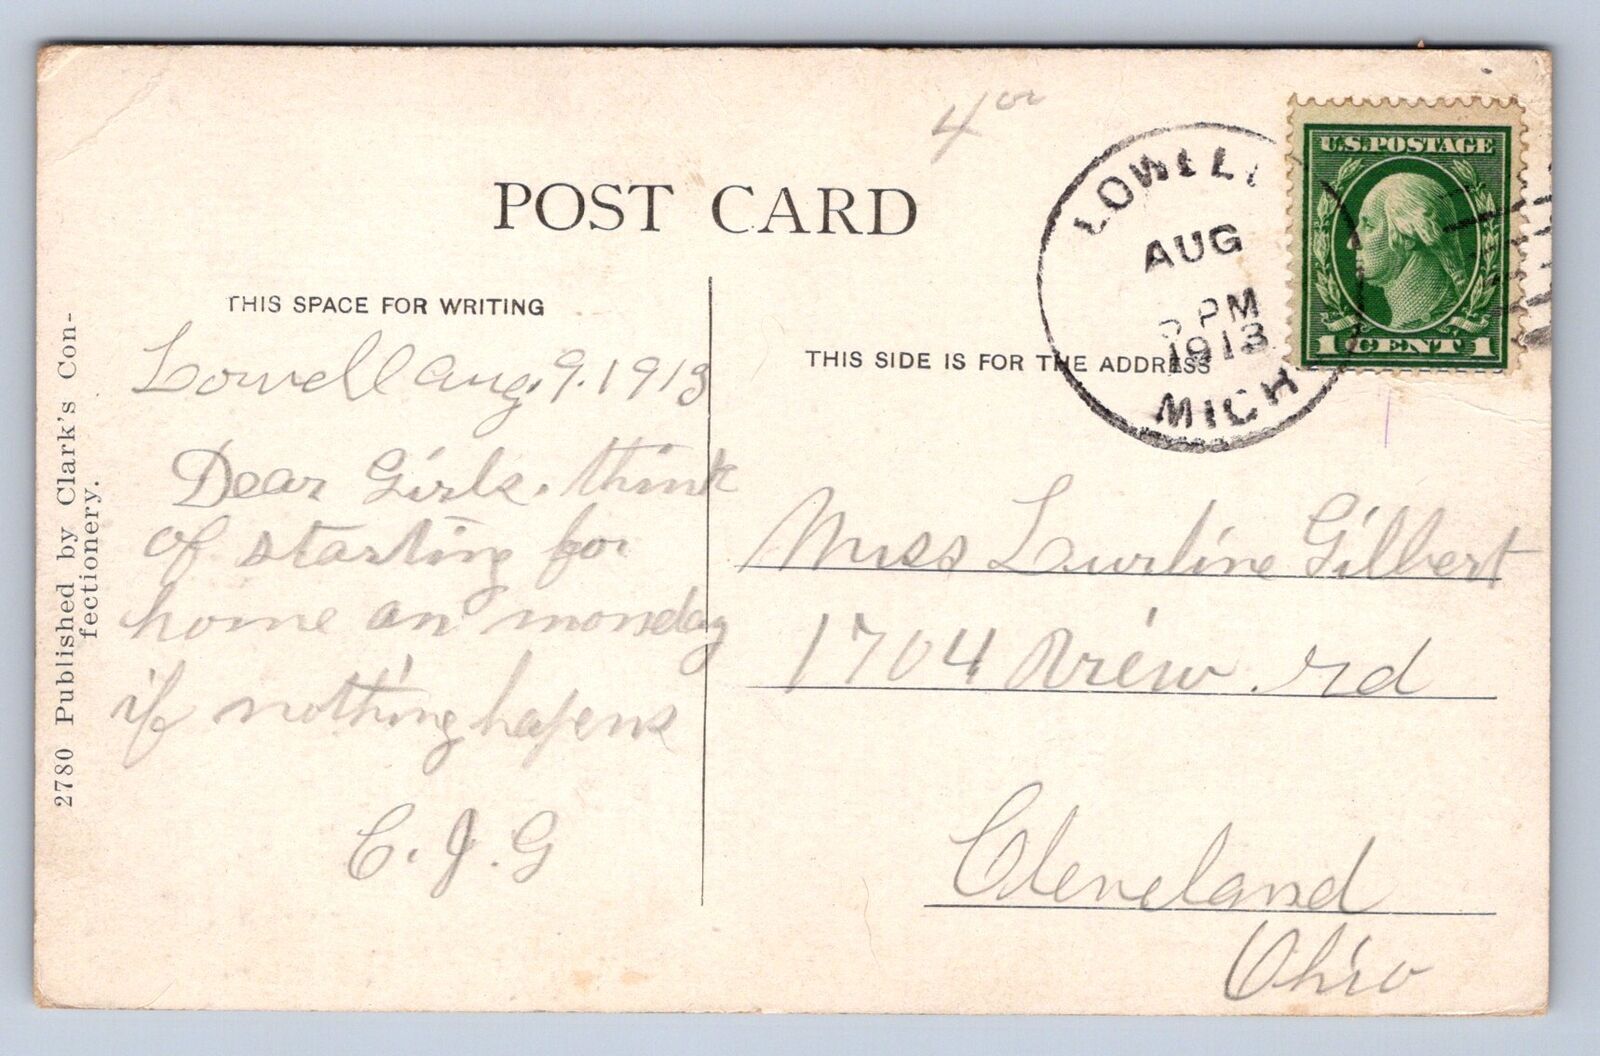 4 00
POST CARD
LOWELL
AUG
PM
1913
MICH
U.S. POSTAGE
1 CENT 1
THIS SPACE FOR WRITING
THIS SIDE IS FOR THE ADDRESS
Lowell Aug. 9. 1913
Dear Girls. think
of starting for
home an monday
if nothing hapens
C. J. G
Miss Lurline Gilbert
1704 rd
Cleveland
Ohio
2780 Published by Clark's Con-
fectionery.